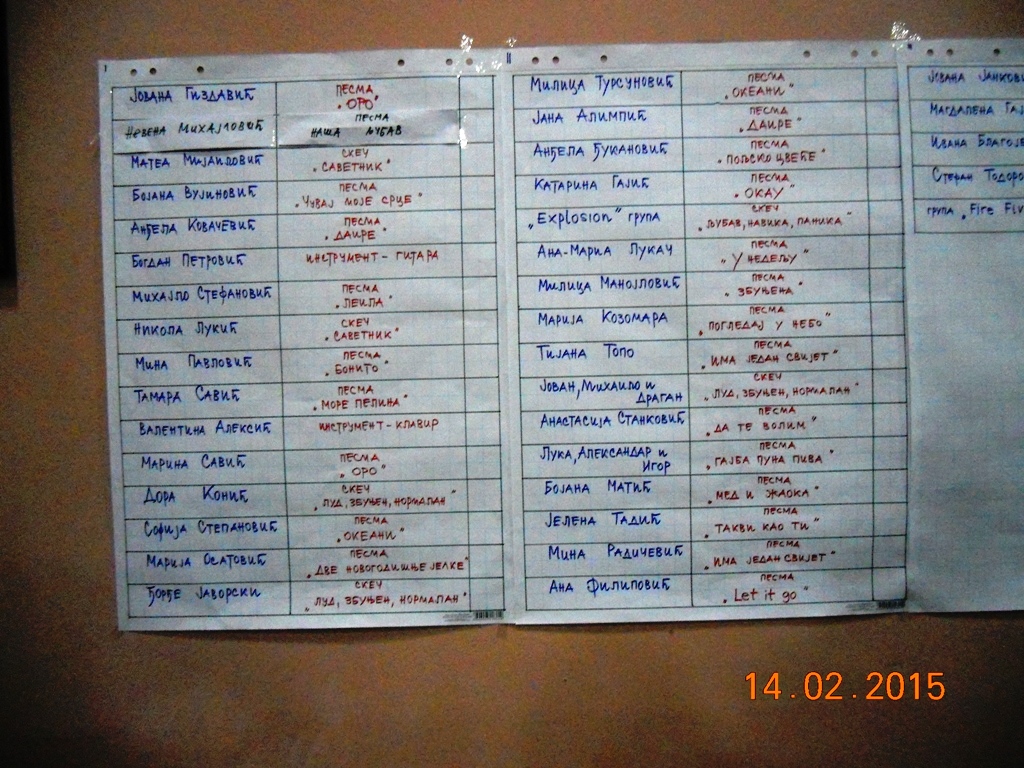 I
ЈОВАНА ГИЗДАВИЋ
ПЕСМА
„ОРО"
НЕВЕНА МИХАЈЛОВИЋ
ПЕСМА
НАША ЉУБАВ
МАТЕА МИЈАИЛОВИЋ
СКЕЧ
„САВЕТНИК"
БОЈАНА ВУЈИНОВИЋ
ПЕСМА
„ЧУВАЈ МОЈЕ СРЦЕ"
АНЂЕЛА КОВАЧЕВИЋ
ПЕСМА
„ДАИРЕ"
БОГДАН ПЕТРОВИЋ
ИНСТРУМЕНТ - ГИТАРА
МИХАЈЛО СТЕФАНОВИЋ
ПЕСМА
„ЛЕИЛА"
НИКОЛА ЛУКИЋ
СКЕЧ
„САВЕТНИК"
МИНА ПАВЛОВИЋ
ПЕСМА
„БОНИТО"
ТАМАРА САВИЋ
ПЕСМА
„МОРЕ ПЕЛИНА"
ВАЛЕНТИНА АЛЕКСИЋ
ИНСТРУМЕНТ - КЛАВИР
МАРИНА САВИЋ
ПЕСМА
„ОРО"
ДОРА КОНИЋ
СКЕЧ
„ЛУД, ЗБУЊЕН, НОРМАЛАН"
СОФИЈА СТЕПАНОВИЋ
ПЕСМА
„ОКЕАНИ"
МАРИЈА ОСАТОВИЋ
ПЕСМА
„ДВЕ НОВОГОДИШЊЕ ЈЕЛКЕ"
ЂОРЂЕ ЈАВОРСКИ
СКЕЧ
„ЛУД, ЗБУЊЕН, НОРМАЛАН"
II
МИЛИЦА ТУРСУНОВИЋ
ПЕСМА
„ОКЕАНИ"
ЈАНА АЛИМПИЋ
ПЕСМА
„ДАИРЕ"
АНЂЕЛА ЂУКАНОВИЋ
ПЕСМА
„ПОЉСКО ЦВЕЋЕ"
КАТАРИНА ГАЈИЋ
ПЕСМА
„OKAY"
„Explosion" ГРУПА
СКЕЧ
„ЉУБАВ, НАВИКА, ПАНИКА"
АНА-МАРИА ЛУКАЧ
ПЕСМА
„У НЕДЕЉУ"
МИЛИЦА МАНОЈЛОВИЋ
ПЕСМА
„ЗБУЊЕНА"
МАРИЈА КОЗОМАРА
ПЕСМА
„ПОГЛЕДАЈ У НЕБО"
ТИЈАНА ТОПО
ПЕСМА
„ИМА ЈЕДАН СВИЈЕТ"
ЈОВАН, МИХАИЛО И
ДРАГАН
СКЕЧ
„ЛУД, ЗБУЊЕН, НОРМАЛАН"
АНАСТАСИЈА СТАНКОВИЋ
ПЕСМА
„ДА ТЕ ВОЛИМ"
ЛУКА, АЛЕКСАНДАР И
ИГОР
ПЕСМА
„ГАЈБА ПУНА ПИВА"
БОЈАНА МАТИЋ
ПЕСМА
„МЕД И ЖАОКА"
ЈЕЛЕНА ТАДИЋ
ПЕСМА
„ТАКВИ КАО ТИ"
МИНА РАДИЧЕВИЋ
ПЕСМА
„ИМА ЈЕДАН СВИЈЕТ"
АНА ФИЛИПОВИЋ
ПЕСМА
„Let it go"
ЈОВАНА ЈАНКОВИ
МАГДАЛЕНА ГАЈ
ИВАНА БЛАГОЈЕ
СТЕФАН ТОДОРО
ГРУПА „Fire Fly
14.02.2015